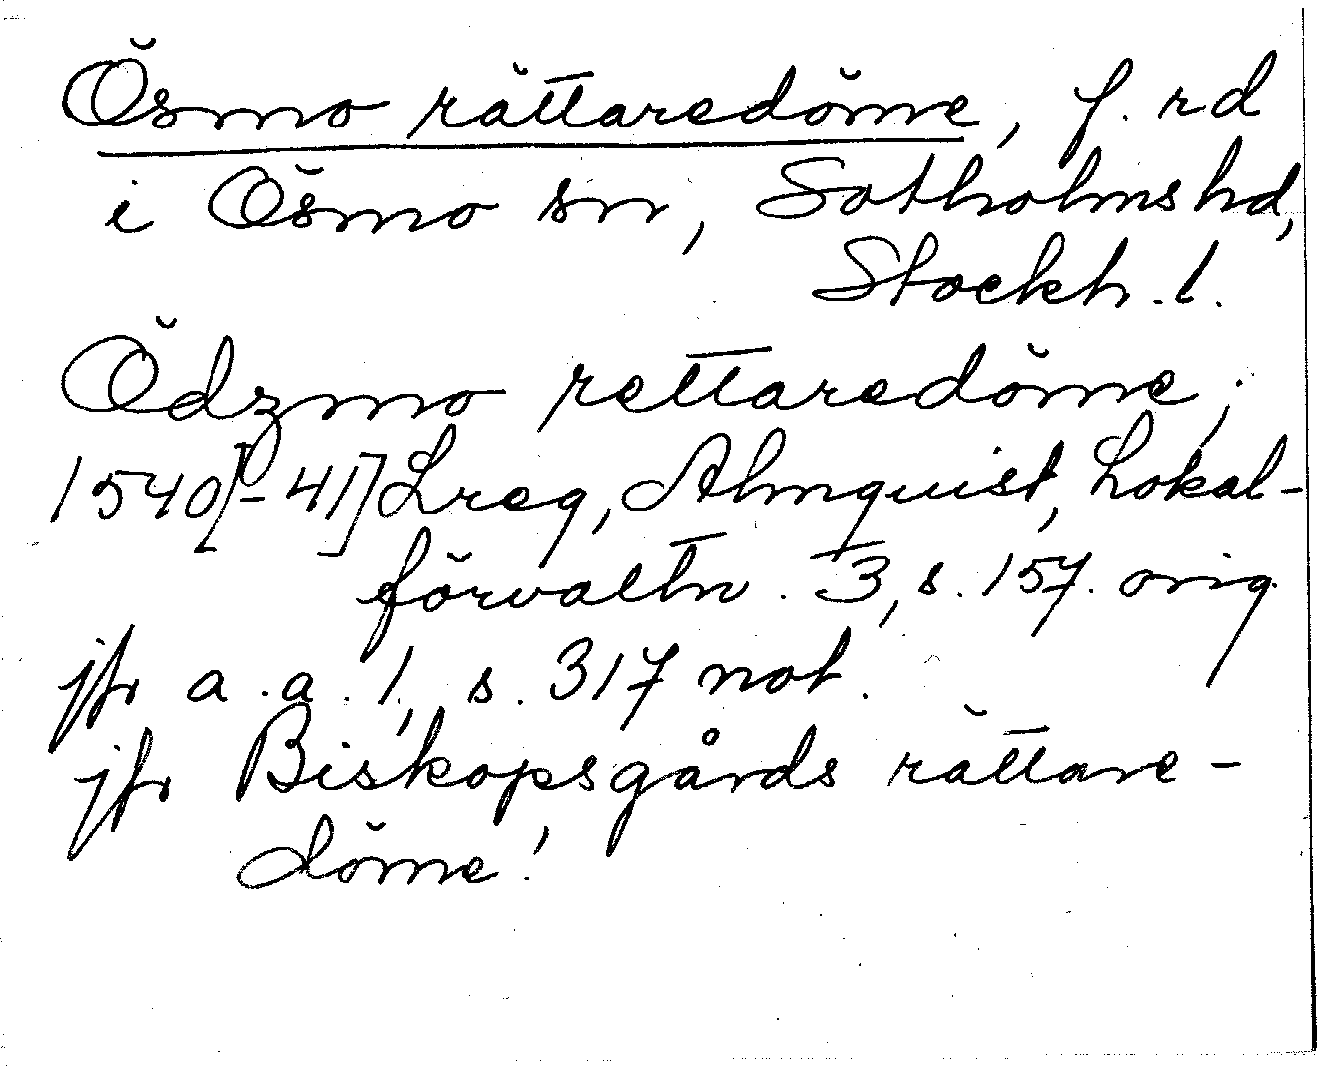 Ösmo rättaredöme, f. rd
i Ösmo sn, Sotholms hd,
Stockh. l.
Ödzmo rettaredöme;
1540[-41] Lreg, Almquist, Lokal-
förvaltn. 3, s. 157. orig
jfr a. a. 1, s. 317 not.
jfr Biskopsgårds rättare-
döme!